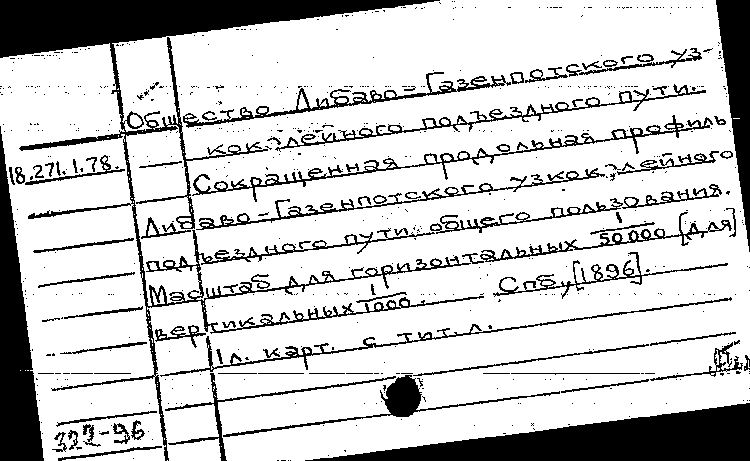 Общество Либаво-Газенпотского уз-
коколейного подъездного пути.
18.271.1.78.
Сокращенная продольная профиль
Либаво-Газенпотского узкоколейного
подъездного пути общего пользования.
Масштаб для горизонтальных 1/50000 [для]
вертикальных 1/1000. Спб., [1896].
1л. карт. с тит. л.
322-96